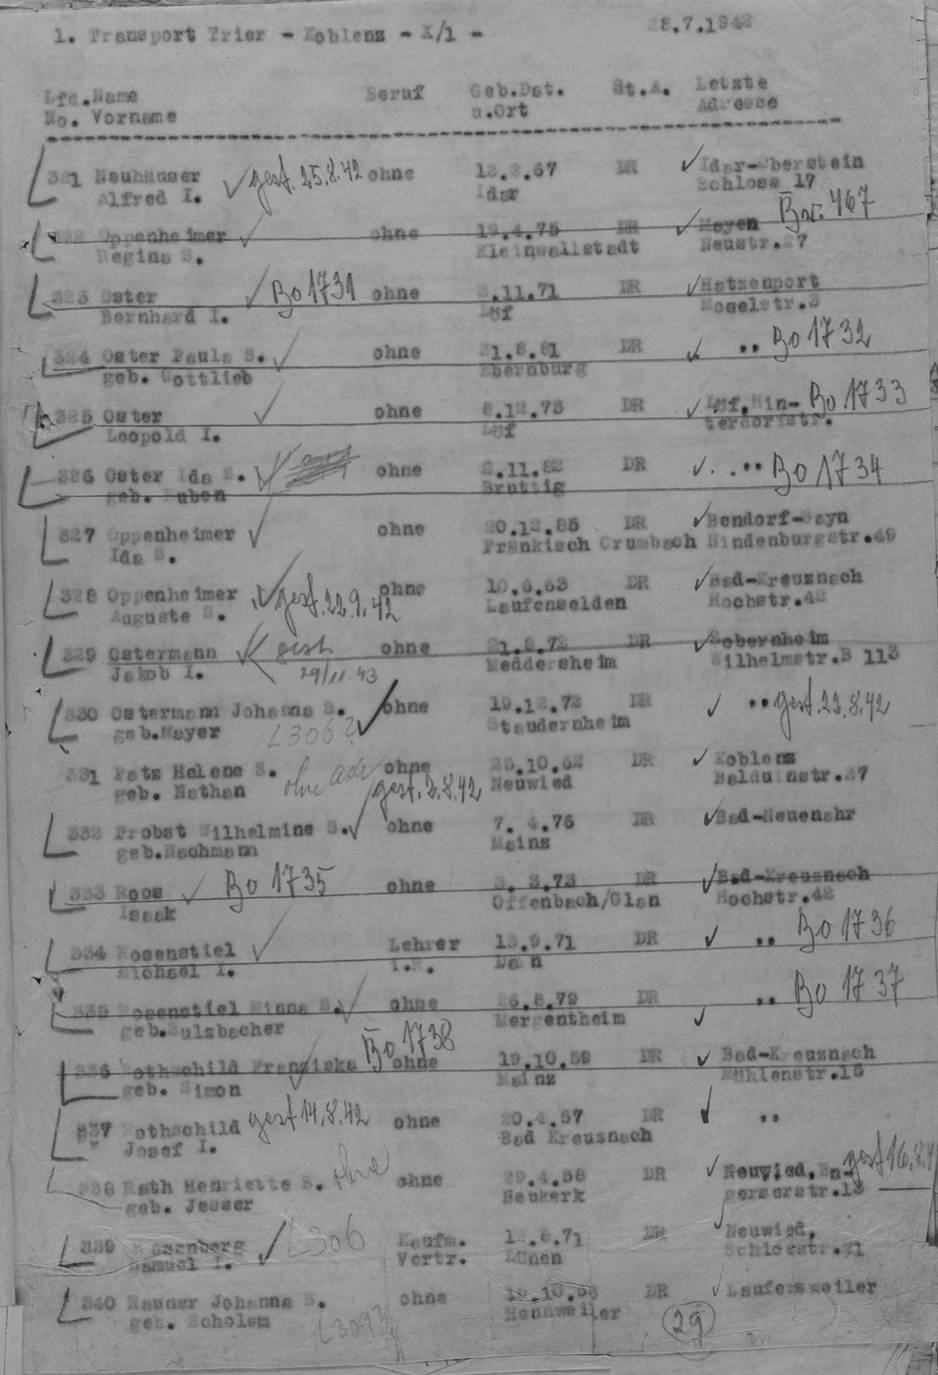 1. Transport Trier - Koblenz - X/1 - 28.7.1942
Lfd.Name Beruf Geb.Dat. St.A. Letzte
No. Vorname u.Ort Adresse
321 Neuhäuser gest. 25.8.42 ohne 13.2.67 DR Idar-Oberstein
Alfred I. Idar Schloss 17
322 Oppenheimer ohne 19.4.75 DR Mayen Bor. 467
Regina S. Kleinwallstadt Neustr.27
323 Oster Bo 1731 ohne 3.11.71 DR Hatzenport
Bernhard I. Löf Moselstr.3
324 Oster Paula S. ohne 31.8.81 DR " Bo 1732
geb. Gottlieb Ebernburg
325 Oster ohne 8.12.73 DR Löf,Hin- Bo 1733
Leopold I. Löf terdorfstr.
326 Oster Ida S. ohne 2.11.82 DR " Bo 1734
geb. Huben Bruttig
327 Oppenheimer ohne 20.12.85 DR Bendorf-Sayn
Ida S. Fränkisch Crumbach Hindenburgstr.49
328 Oppenheimer gest. 22.9.42 ohne 10.6.63 DR Bad-Kreuznach
Auguste S. Laufenselden Hochstr.42
329 Ostermann gest. ohne 21.8.72 DR Sobernheim
Jakob I. 29/11 43 Meddersheim Wilhelmstr.B 113
330 Ostermann Johanna S. ohne 19.12.72 DR " gest. 23.8.42
geb.Mayer L306 Staudernheim
331 Patz Helene S. ohne ohne 25.10.62 DR Koblenz
geb. Nathan Neuwied Balduinstr.37
gest. 2.8.42
332 Probst Wilhelmine S. ohne 7. 4.76 DR Bad-Neuenahr
geb.Nachmann Mainz
333 Roos Bo 1735 ohne 3. 3.73 DR Bad-Kreuznach
Isaak Offenbach/Glan Hochstr.42
334 Rosenstiel Lehrer 13.9.71 DR " Bo 1736
Michael I. i.R. Dahn
335 Rosenstiel Minna S. ohne 26.8.79 DR " Bo 1737
geb.Sulzbacher Mergentheim
336 Rothschild Franziska Bo 1738 ohne 19.10.59 DR Bad-Kreuznach
geb. Simon Mainz Mühlenstr.15
337 Rothschild gest 14.8.42 ohne 20.4.57 DR "
Josef I. Bad Kreuznach
338 Rath Henriette S. ohne ohne 29.4.58 DR Neuwied,En- gest 16.8.4
geb. Jesser Heukerk gerserstr.13
339 Rosenberg L306 Kaufm. DR Neuwied,
Samuel I. Vertr. Lünen Schlosstr.71
340 Rauner Johanna S. ohne DR Laufersweiler
geb. Scholem Hennweiler
29